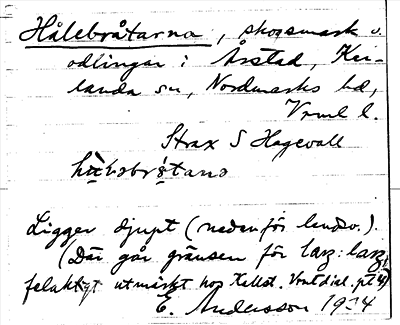 Hålebråtarna, skogsmark o.
odlingar i Årstad, Kei-
landa sn, Nordmarks hd,
Vrml l.
Strax S Hagevall
Ligger djupt (nedanför landsv.).
(Där går gränsen för larg: larg,
felaktigt utmärkt hos Kallst. Vrml dial.
E. Andersson 1934